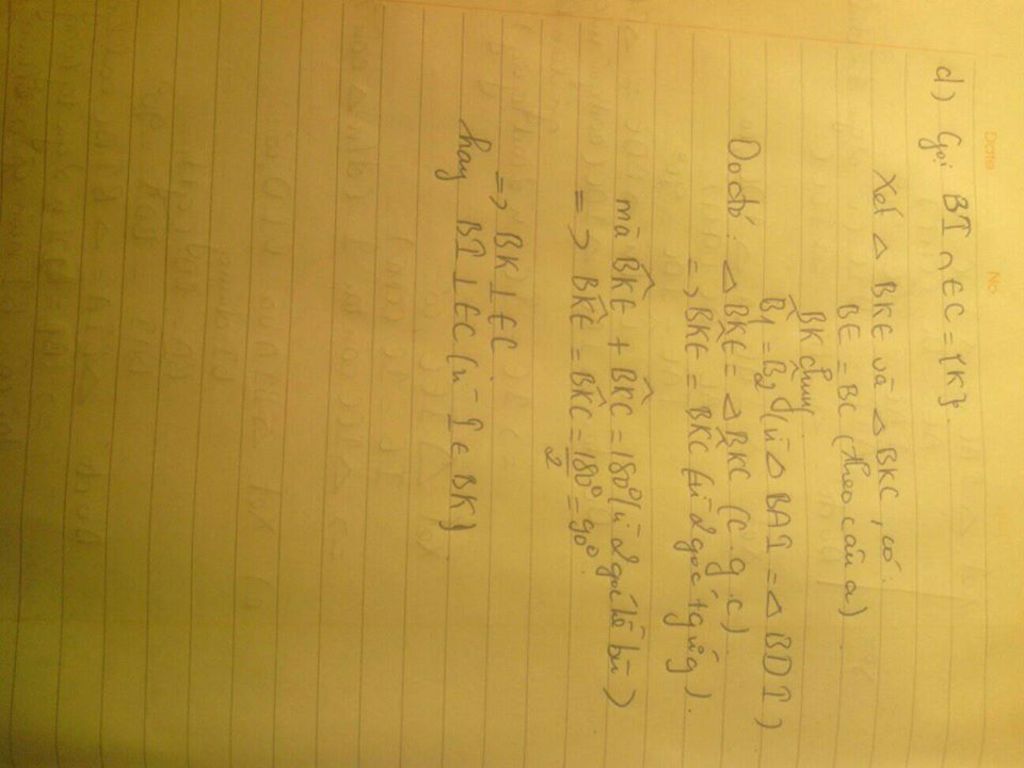 Date
No
d) Gọi BI ∩ EC = {K}.
Xét △ BKE và △ BKC, có:
BE = BC (theo câu a)
BK chung
B̂1 = B̂2 (vì △ BAI = △ BDI)
Do đó: △ BKE = △ BKC (c.g.c)
=> BK̂E = BK̂C (vì 2 góc tgứng).
mà BK̂E + BK̂C = 180° (vì 2 góc kề bù)
=> BK̂E = BK̂C = 180°/2 = 90°.
=> BK ⊥ EC
hay BI ⊥ EC (vì I ∈ BK)